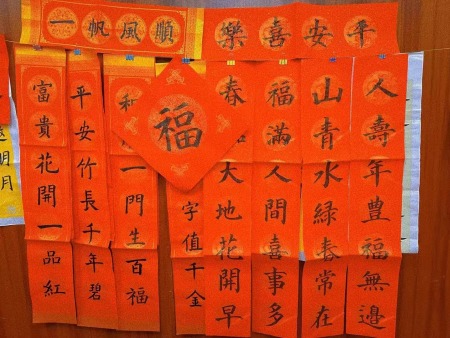 一帆風順
平安喜樂
人壽年豐福無邊
山青水綠春常在
福滿人間喜事多
春大地花開早
福
字值千金
和一門生百福
平安竹長千年碧
富貴花開一品紅
明月